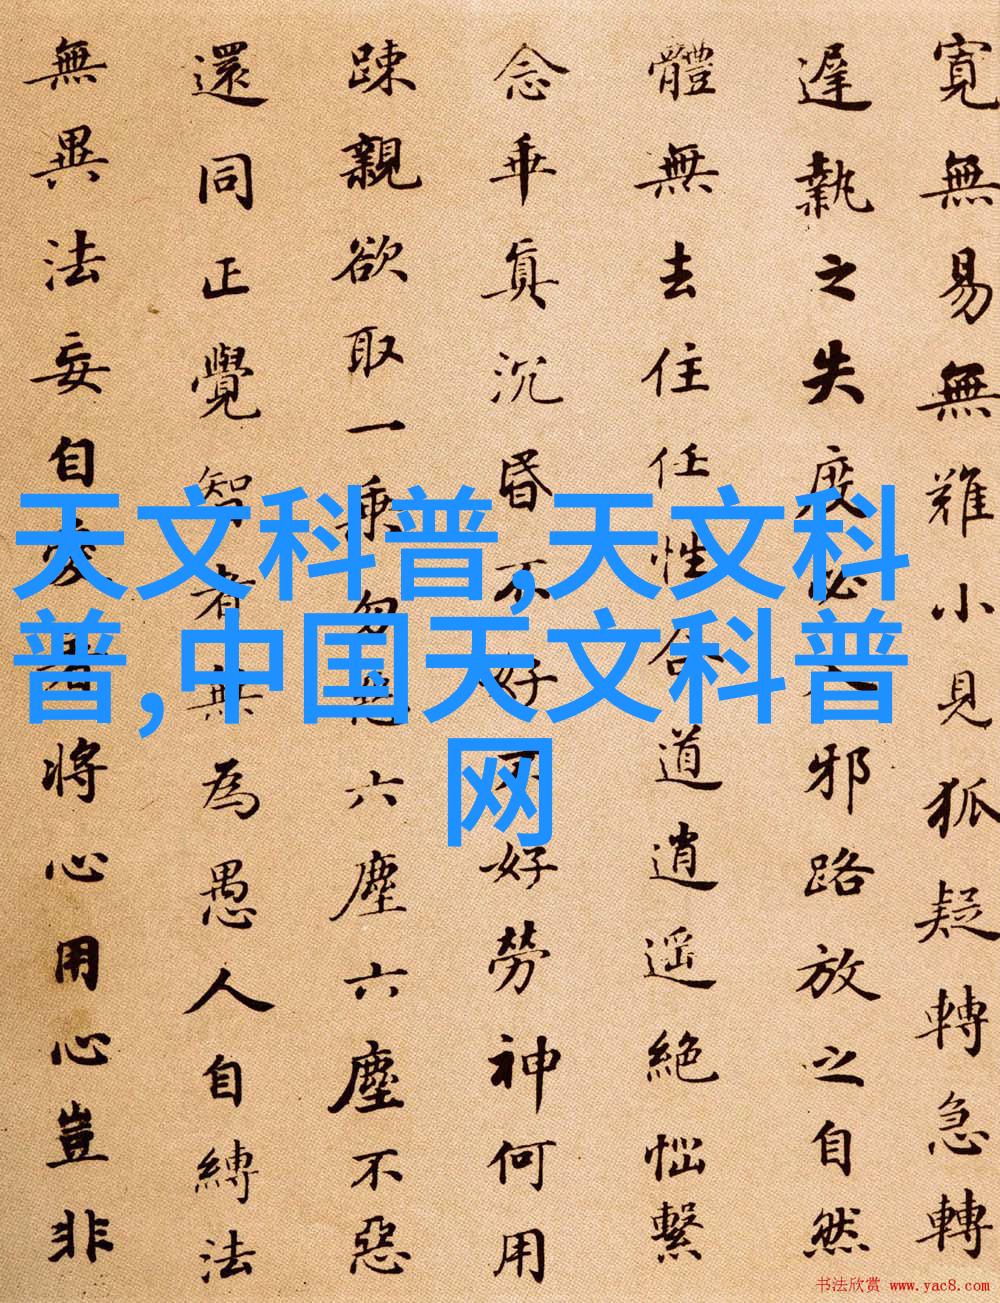 寬無易無難小見狐疑轉急轉
遲執之失度必入邪路放之自然
體無去住任性合道逍遥絶惱繫
念乖真沉昏不好不好勞神何用
踈親欲取一乘勿惡六塵六塵不惡
還同正覺智者無為愚人自縛法
無異法妄自愛著將心用心豈非
天文科普,天文科
普,中国天文科普
网
书法欣赏 www.yac8.com